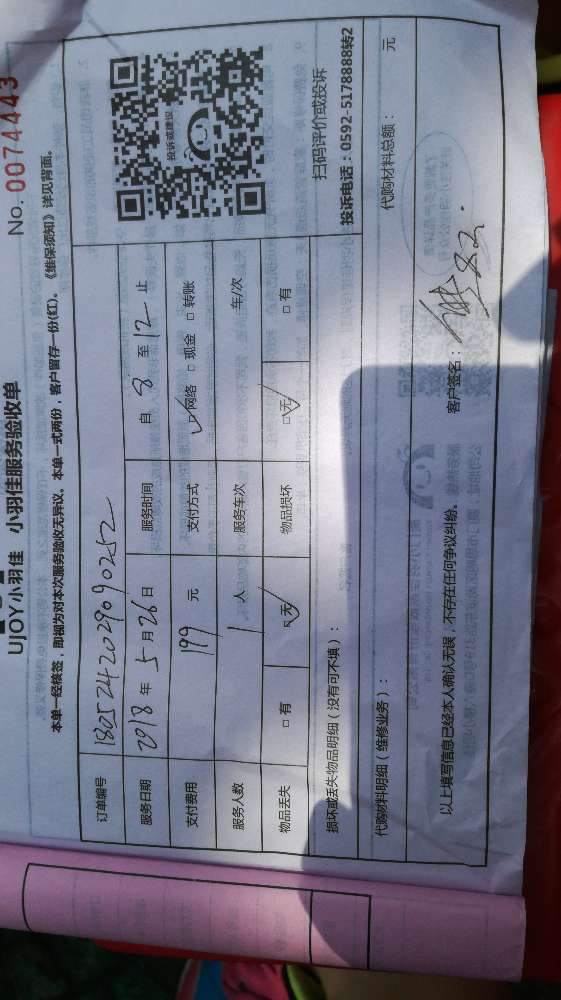 No. 0074443
UJOY小羽佳 小羽佳服务验收单
本单一经核签，即视为对本次服务验收无异议，本单一式两份，客户留存一份(红)。《维保须知》详见背面。
订单编号 1805242029690252
服务日期 2018 年 5 月 26 日 服务时间 自 8 至 12 止
支付费用 199 元 支付方式 ☑网络 □现金 □转账
服务人数 1 人 服务车次 车/次
物品丢失 □有 ☑无 物品损坏 ☑无 □有
投诉或建议
扫码评价或投诉
投诉电话：0592-5178888转2
损坏或丢失物品明细（没有可不填）：
代购材料明细（维修业务）： 代购材料总额： 元
以上填写信息已经本人确认无误，不存在任何争议纠纷。 客户签名：